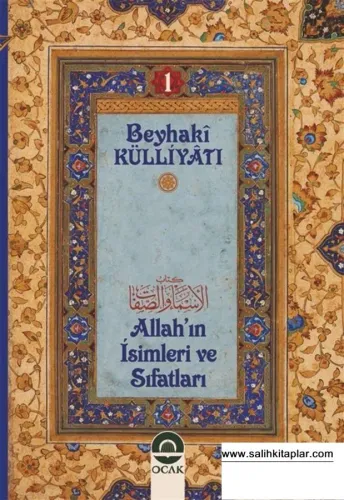 1
Beyhakî
KÜLLİYÂTI
كتاب
الأسماء والصفات
Allah'ın
İsimleri ve
Sıfatları
OCAK
www.salihkitaplar.com